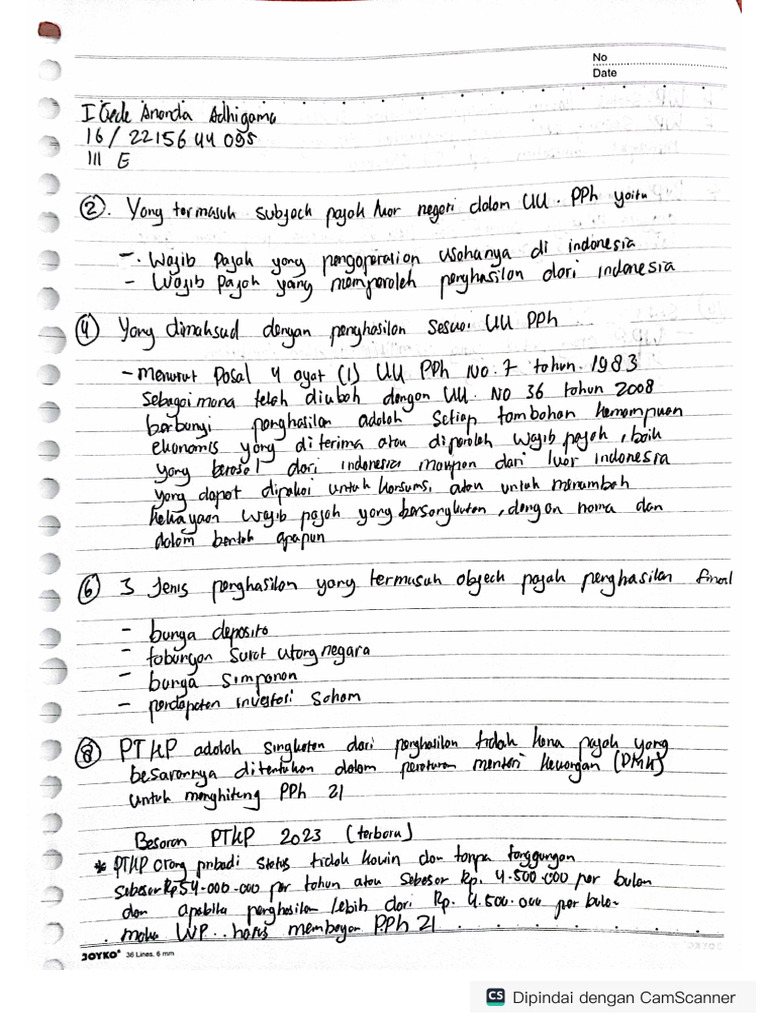 No
Date
I Gede Ananda Adhigama
16 / 22156 44 095
III E
(2). Yang termasuk subjeck pajak luar negeri dalam UU. PPh yaitu
-. Wajib Pajak yang pengoperation usahanya di indonesia
- Wajib Pajak yang memperoleh penghasilan dari indonesia
(4) Yang dimaksud dengan penghasilan sesuai UU PPh
- menurut Pasal 4 ayat (1) UU PPh No. 7 tahun. 1983
Sebagaimana telah diubah dengan UU. NO 36 tahun 2008
berbunyi penghasilan adalah setiap tambahan kemampuan
ekonomis yang diterima atau diperoleh wajib pajak, baik
yang berasal dari indonesia maupun dari luar indonesia
yang dapat dipakai untuk konsumsi atau untuk menambah
kekayaan wajib pajak yang bersangkutan, dengan nama dan
dalam bentuk apapun
(6) 3 Jenis penghasilan yang termasuk objeck pajak penghasilan final
- bunga deposito
- tabungan surat utang negara
- bunga simpanan
- pendapatan investasi saham
(8) PTKP adalah singkatan dari penghasilan tidak kena pajak yang
besarannya ditentukan dalam peraturan menteri keuangan (PMK)
untuk menghitung PPh 21
Besaran PTKP 2023 (terbaru)
* PTKP orang pribadi status tidak kawin dan tanpa tanggungan
sebesar Rp 54.000.000 per tahun atau sebesar Rp. 4.500.000 per bulan
dan apabila penghasilan lebih dari Rp. 4.500.000 per bulan
maka WP.. harus membayar PPh 21
JOYKO 36 Lines, 6 mm
CS Dipindai dengan CamScanner